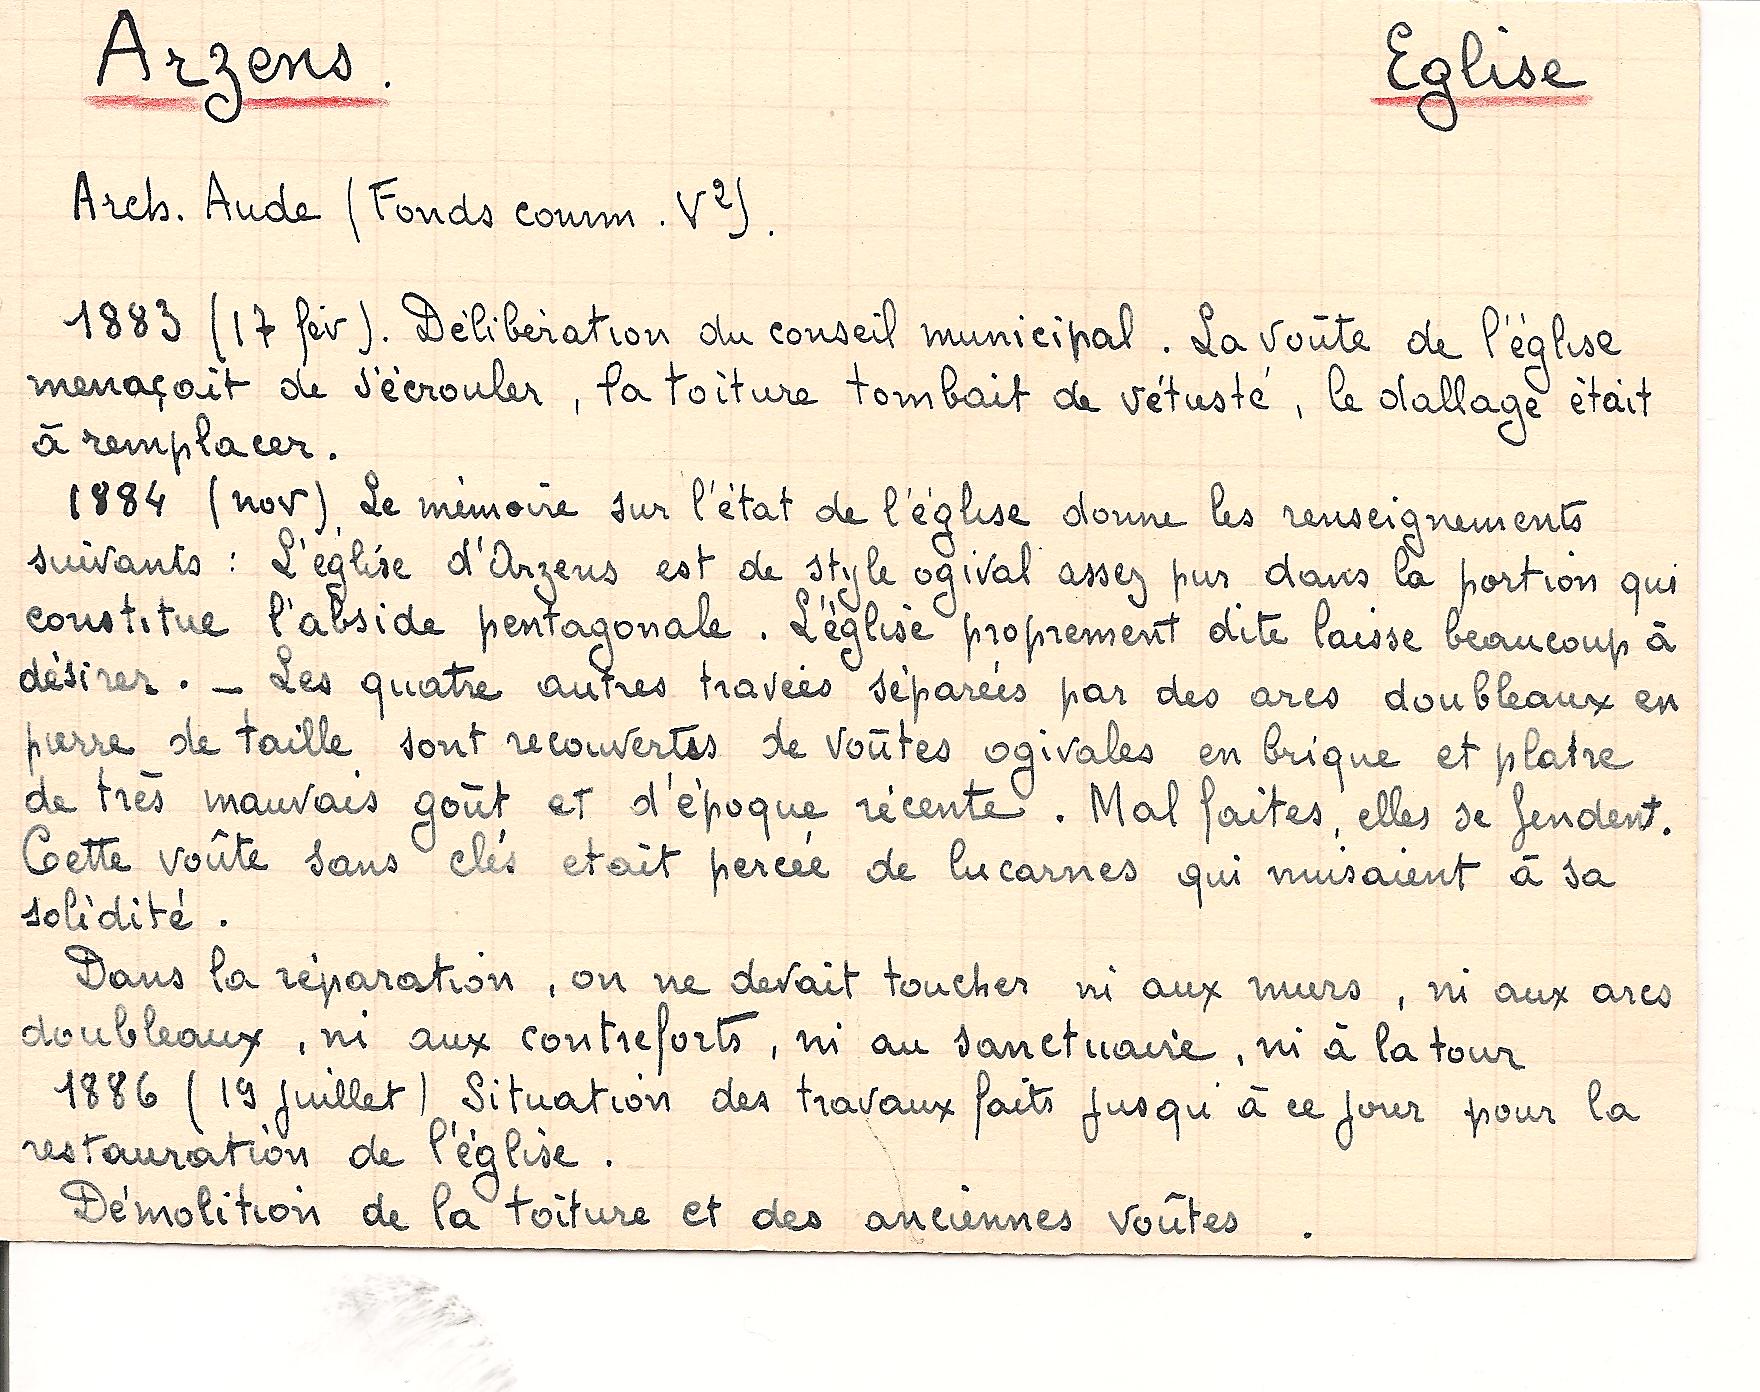 Arzens. Eglise
Arch. Aude (Fonds comm. V²).
1883 (17 fév). Délibération du conseil municipal. La voûte de l'église
menaçait de s'écrouler, la toiture tombait de vétusté, le dallage était
à remplacer.
1884 (nov). Le mémoire sur l'état de l'église donne les renseignements
suivants : L'église d'Arzens est de style ogival assez pur dans la portion qui
constitue l'abside pentagonale. L'église proprement dite laisse beaucoup à
désirer. _ Les quatre autres travées séparées par des arcs doubleaux en
pierre de taille sont recouvertes de voûtes ogivales en brique et platre
de très mauvais goût et d'époque récente. Mal faites, elles se fendent.
Cette voûte sans clés etait percée de lucarnes qui nuisaient à sa
solidité.
Dans la réparation, on ne devait toucher ni aux murs, ni aux arcs
doubleaux, ni aux contreforts, ni au sanctuaire, ni à la tour
1886 (19 juillet) Situation des travaux faits jusqu'à ce jour pour la
restauration de l'église.
Démolition de la toiture et des anciennes voûtes.